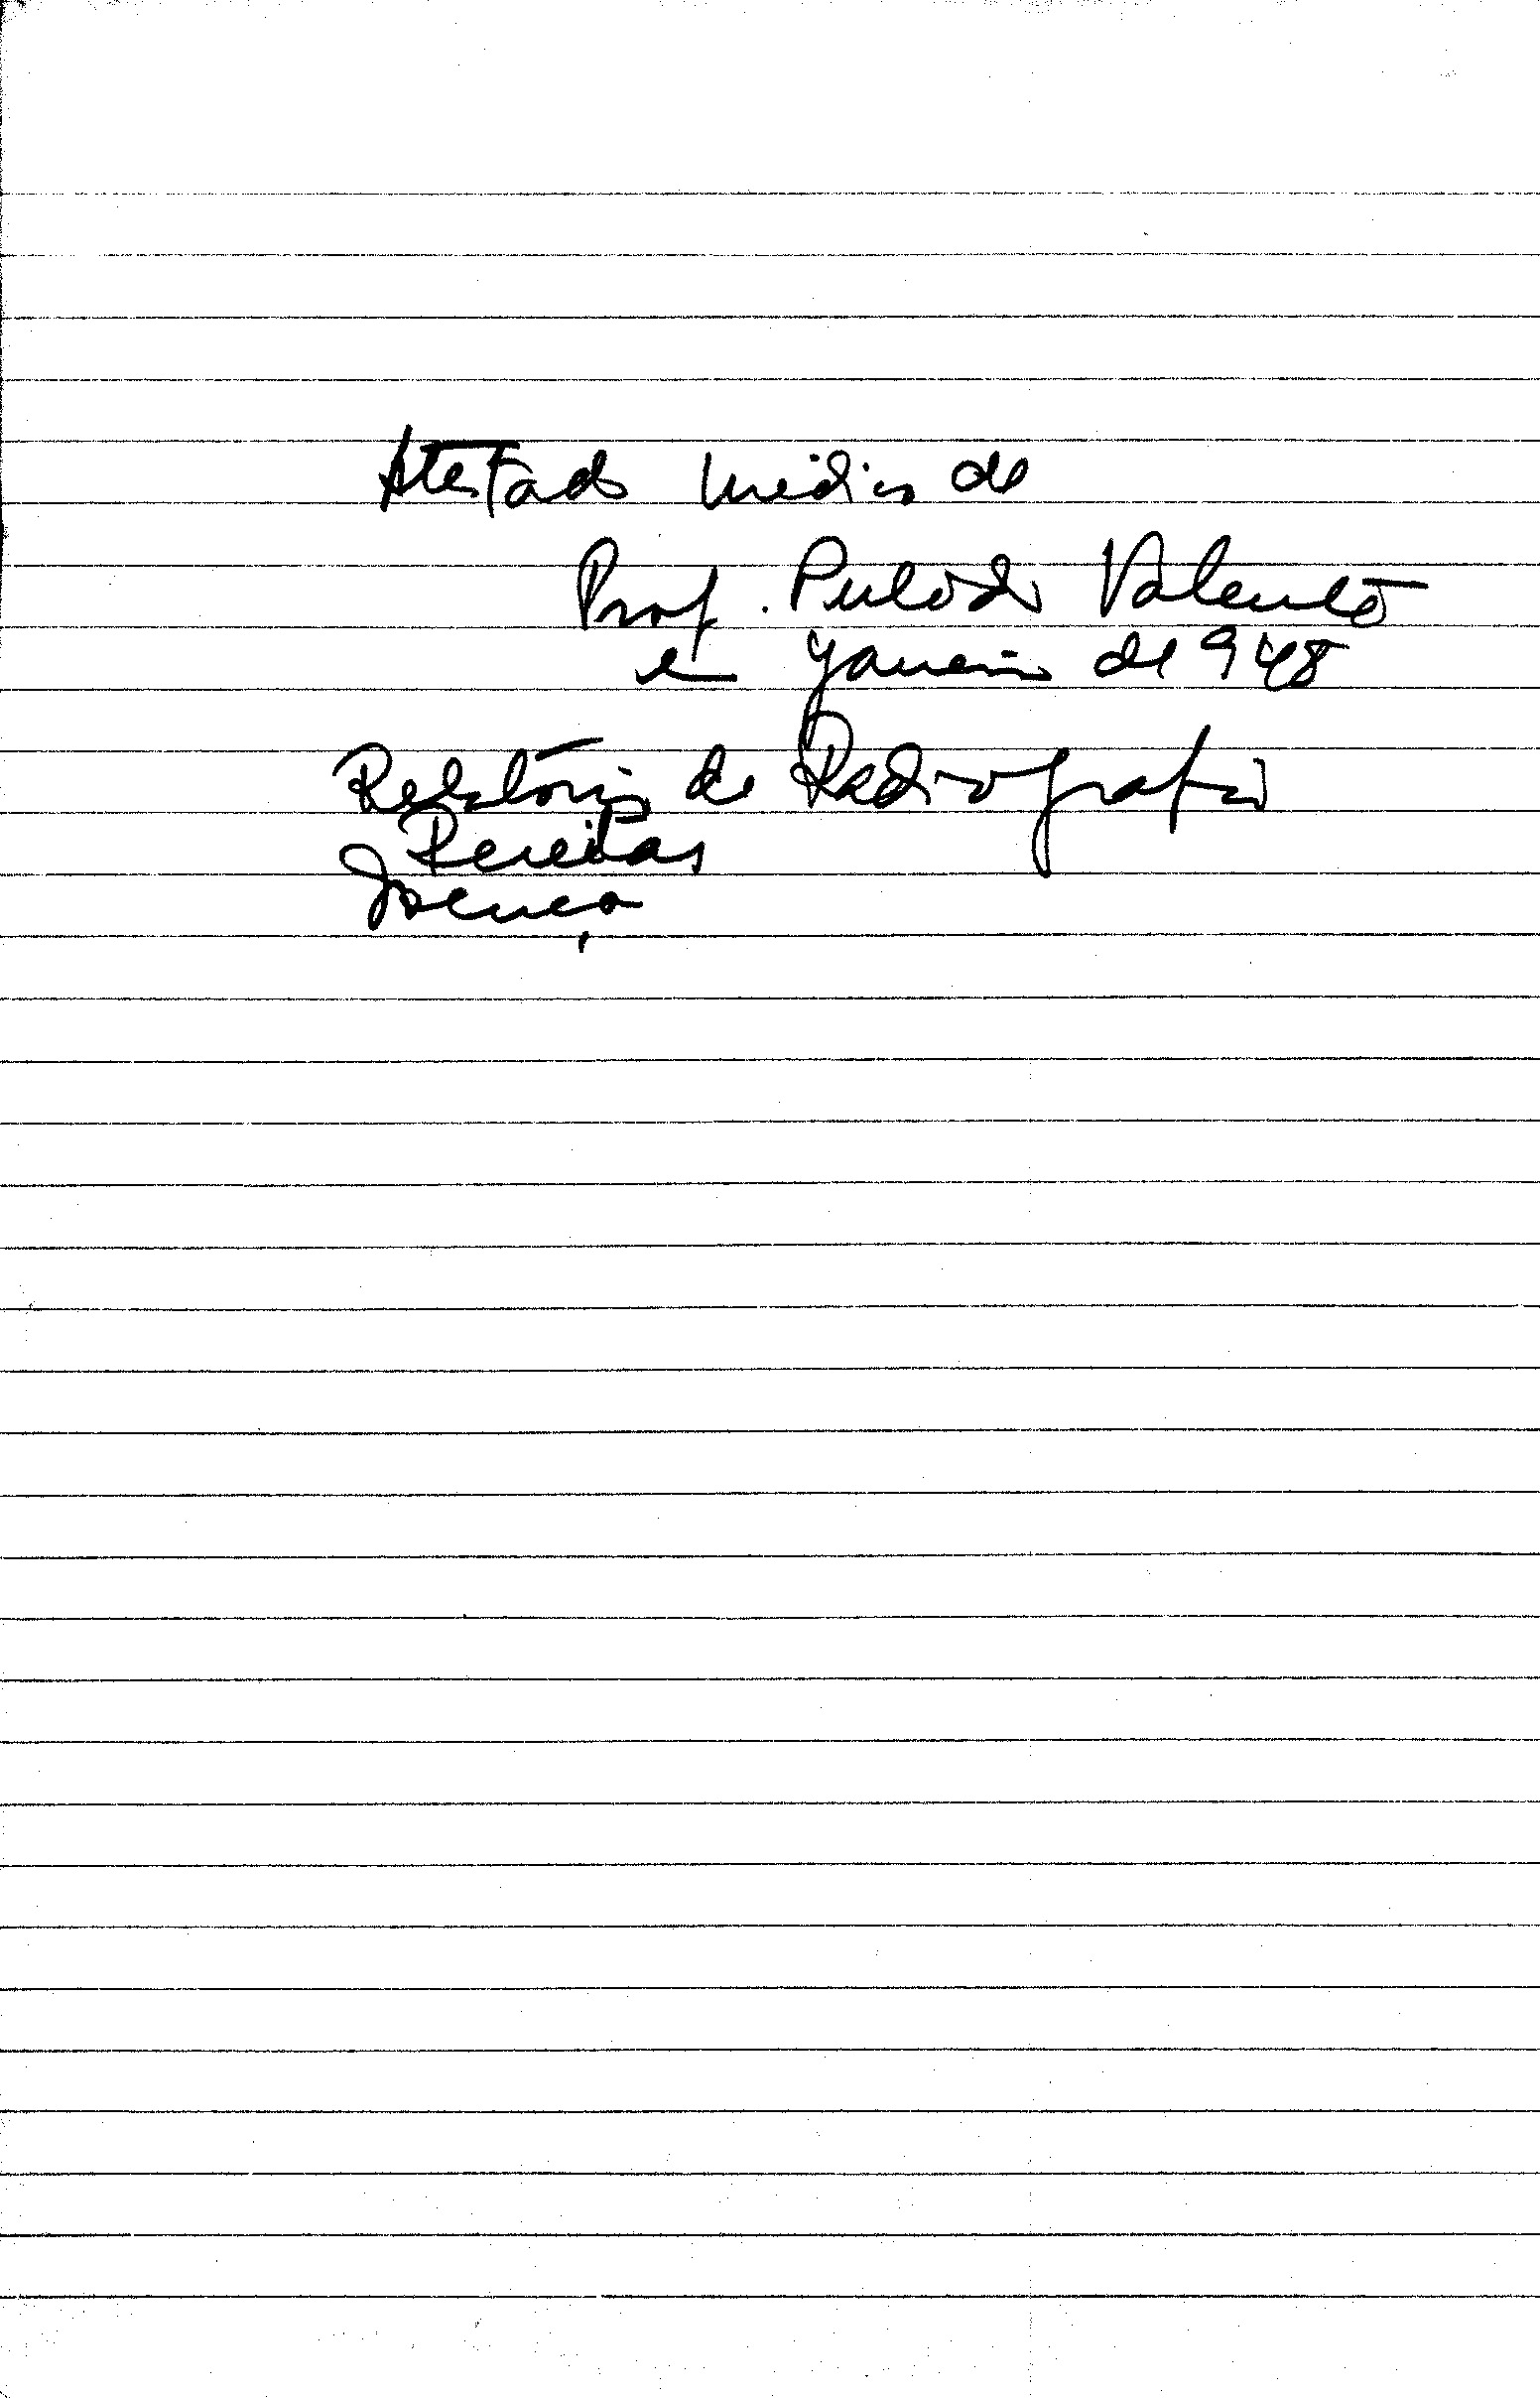 Atestado médico de
Prof. Pulido Valente
em Janeiro de 948
Relatório de Radiografia
Receitas
Doença